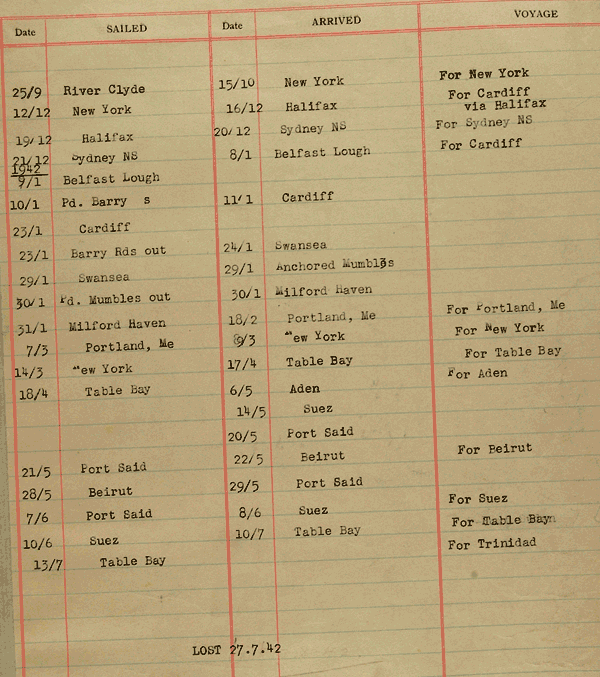 Date SAILED Date ARRIVED VOYAGE
25/9 River Clyde 15/10 New York For New York
12/12 New York 16/12 Halifax For Cardiff
via Halifax
19/12 Halifax 20/12 Sydney NS For Sydney NS
21/12 Sydney NS 8/1 Belfast Lough For Cardiff
1942
9/1 Belfast Lough
10/1 Pd. Barry s 11/1 Cardiff
23/1 Cardiff
23/1 Barry Rds out 24/1 Swansea
29/1 Swansea 29/1 Anchored Mumbles
30/1 Pd. Mumbles out 30/1 Milford Haven
31/1 Milford Haven 18/2 Portland, Me For Portland, Me
7/3 Portland, Me 9/3 New York For New York
14/3 New York 17/4 Table Bay For Table Bay
18/4 Table Bay 6/5 Aden For Aden
14/5 Suez
20/5 Port Said
21/5 Port Said 22/5 Beirut For Beirut
28/5 Beirut 29/5 Port Said
7/6 Port Said 8/6 Suez For Suez
10/6 Suez 10/7 Table Bay For Table Bay
13/7 Table Bay For Trinidad
LOST 27.7.42